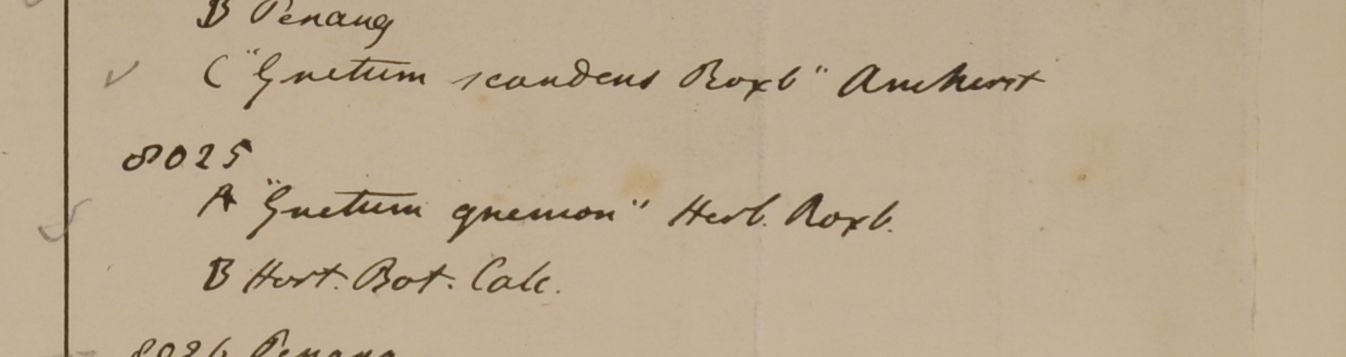 B Penang
C "Gnetum scandens Roxb" Amherst
8025
A "Gnetum gnemon" Herb. Roxb.
B Hort. Bot. Calc.
8026 Penang